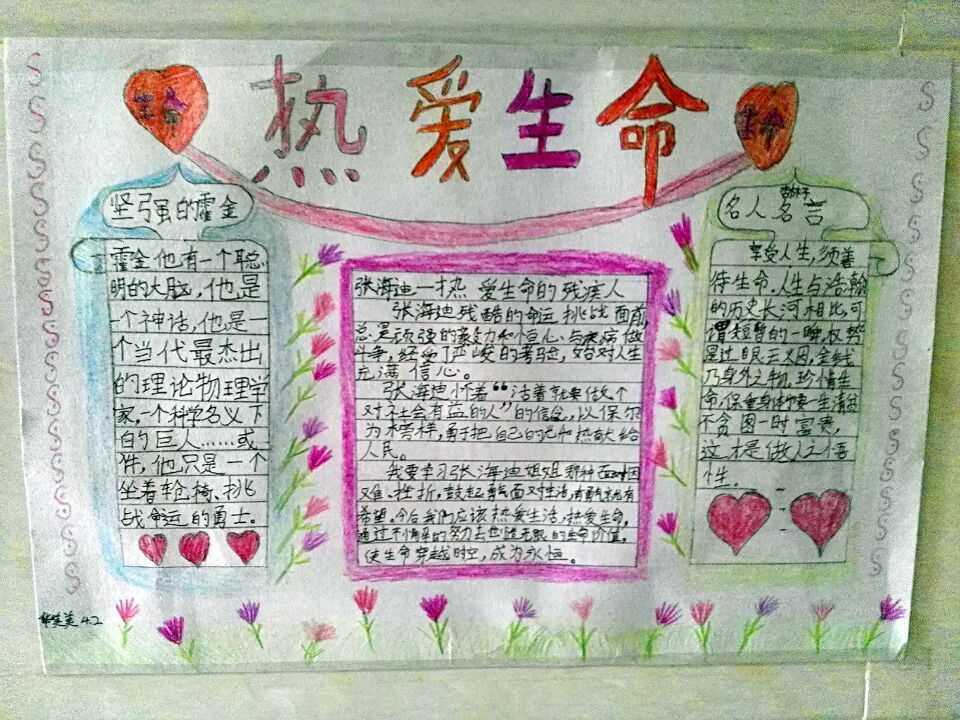 热爱生命
生命
生命
坚强的霍金
霍金他有一个聪
明的大脑,他是
一个神话,他是一
个当代最杰出
的理论物理学
家,一个科学名义下
的巨人……或
许,他只是一个
坐着轮椅、挑
战命运的勇士。
张海迪一热 爱生命的残疾人
张海迪残酷的命运挑战面前,
总是顽强的毅力和恒心与疾病做
斗争,经受了严峻的考验,始对人生
充满信心。
张海迪怀着“活着就要做个
对社会有益的人”的信念,以保尔
为榜样,勇于把自己的光和热献给
人民。
我要学习张海迪姐姐那种面对困
难、挫折,鼓起勇气面对生活,有勇气就有
希望。今后我们应该热爱生活,热爱生命,
通过不懈的努力去 的生命价值,
使生命穿越时空,成为永恒。
名人名言
享受人生,须善
待生命,人生与浩翰
的历史长河相比,可
谓短暂的一瞬,权势
是过眼云义图,金钱
乃身外之物,珍惜生
命,保重身体,要一生清贫
不贪图一时富贵,
这才是做人之悟
性。
4.2